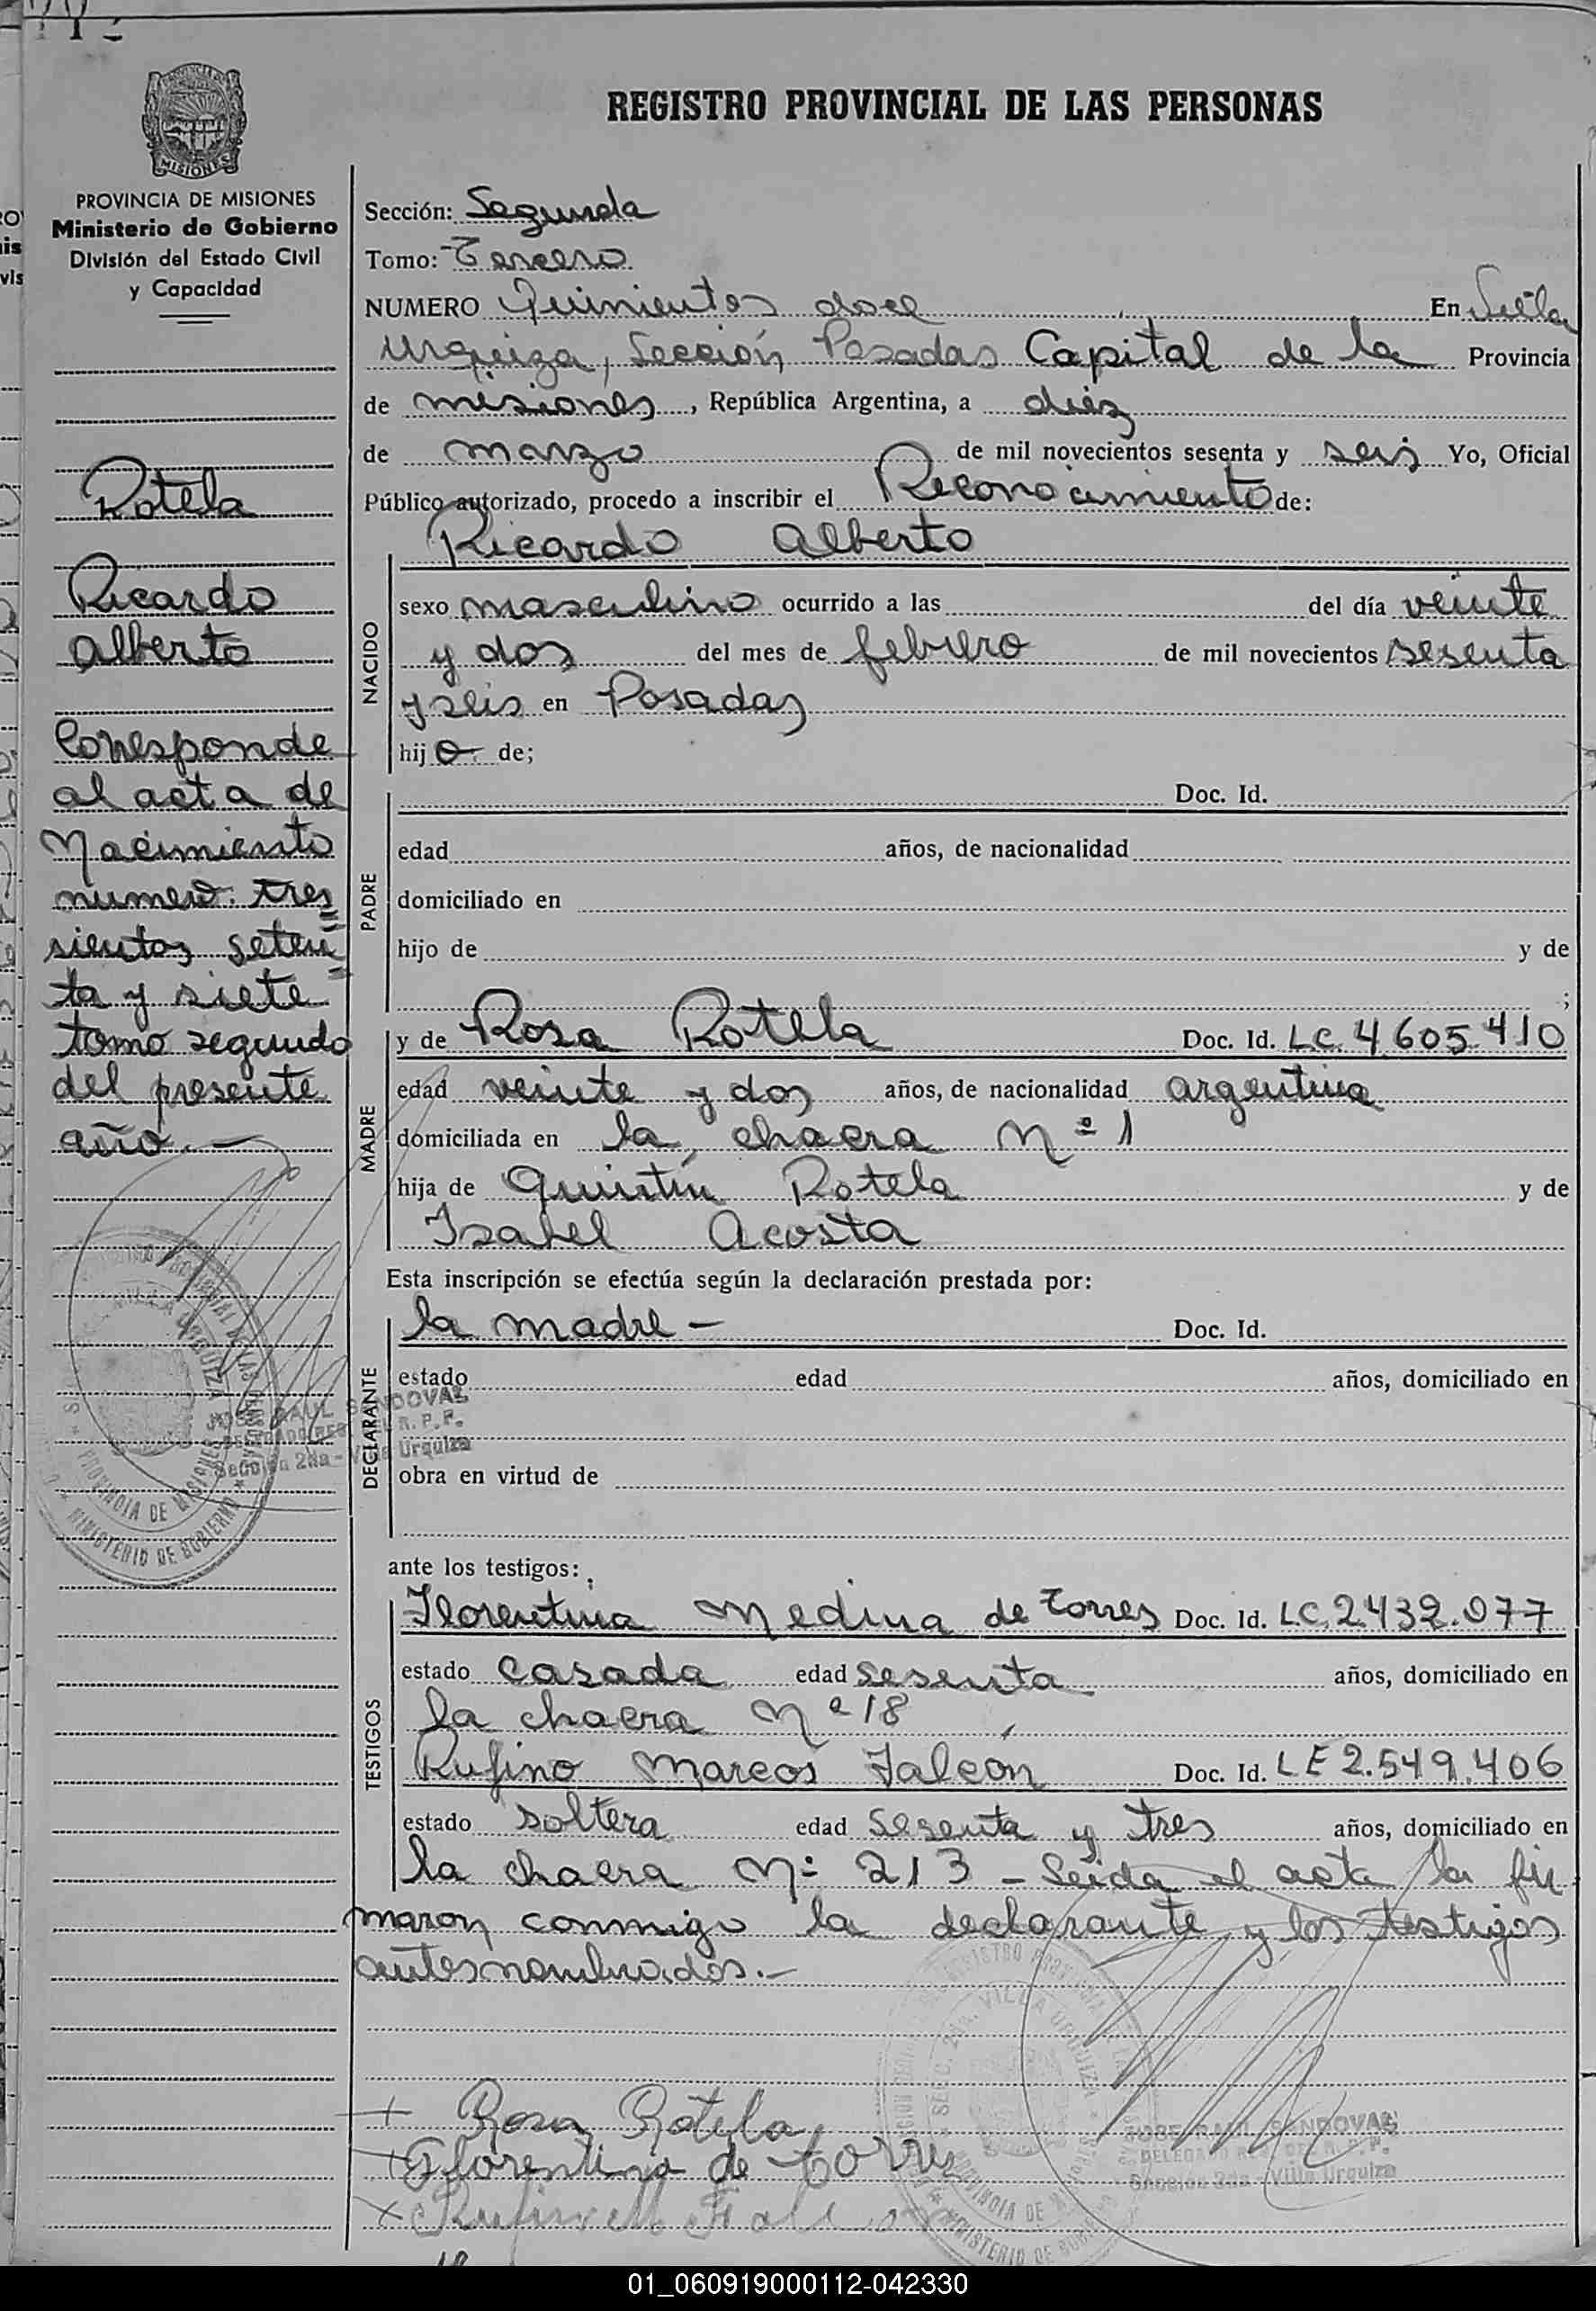 REGISTRO PROVINCIAL DE LAS PERSONAS
MISIONES
PROVINCIA DE MISIONES
Ministerio de Gobierno
División del Estado Civil
y Capacidad
Rotela
Ricardo
Alberto
Corresponde
al acta de
Nacimiento
numero tres
sientos seten
ta y siete
tomo segundo
del presente
año.—
Sección: Segunda
Tomo: Tercero
NUMERO Quinientos doce En Villa
Urquiza, Sección Posadas Capital de la Provincia
de misiones, República Argentina, a diez
de marzo de mil novecientos sesenta y seis Yo, Oficial
Público autorizado, procedo a inscribir el Reconocimiento de:
Ricardo Alberto
NACIDO
sexo masculino ocurrido a las del día veinte
y dos del mes de febrero de mil novecientos sesenta
y seis en Posadas
hijo de;
PADRE
Doc. Id.
edad años, de nacionalidad
domiciliado en
hijo de y de
;
MADRE
y de Rosa Rotela Doc. Id. L.C. 4.605.410
edad veinte y dos años, de nacionalidad argentina
domiciliada en la chacra Nº 1
hija de Quintín Rotela y de
Isabel Acosta
Esta inscripción se efectúa según la declaración prestada por:
DECLARANTE
la madre — Doc. Id.
estado edad años, domiciliado en
obra en virtud de
JOSE RAUL SANDOVAL
DELEGADO REG. DEL R. P. P.
Sección 2da - Villa Urquiza
PROVINCIA DE MISIONES
MINISTERIO DE GOBIERNO
ante los testigos:
TESTIGOS
Florentina Medina de Torres Doc. Id. L.C. 2.432.077
estado casada edad sesenta años, domiciliado en
la chacra Nº 18
Rufino Marcos Falcón Doc. Id. L E 2.549.406
estado soltera edad sesenta y tres años, domiciliado en
la chacra Nº 213 - Leida el acta la fir
maron conmigo la declarante y los testigos
antesnombrados.—
+ Rosa Rotela
+ Florentina de Torres
x Rufino M Falcon
JOSE RAUL SANDOVAL
DELEGADO REG. DEL R. P. P.
Sección 2da - Villa Urquiza
01_060919000112-042330